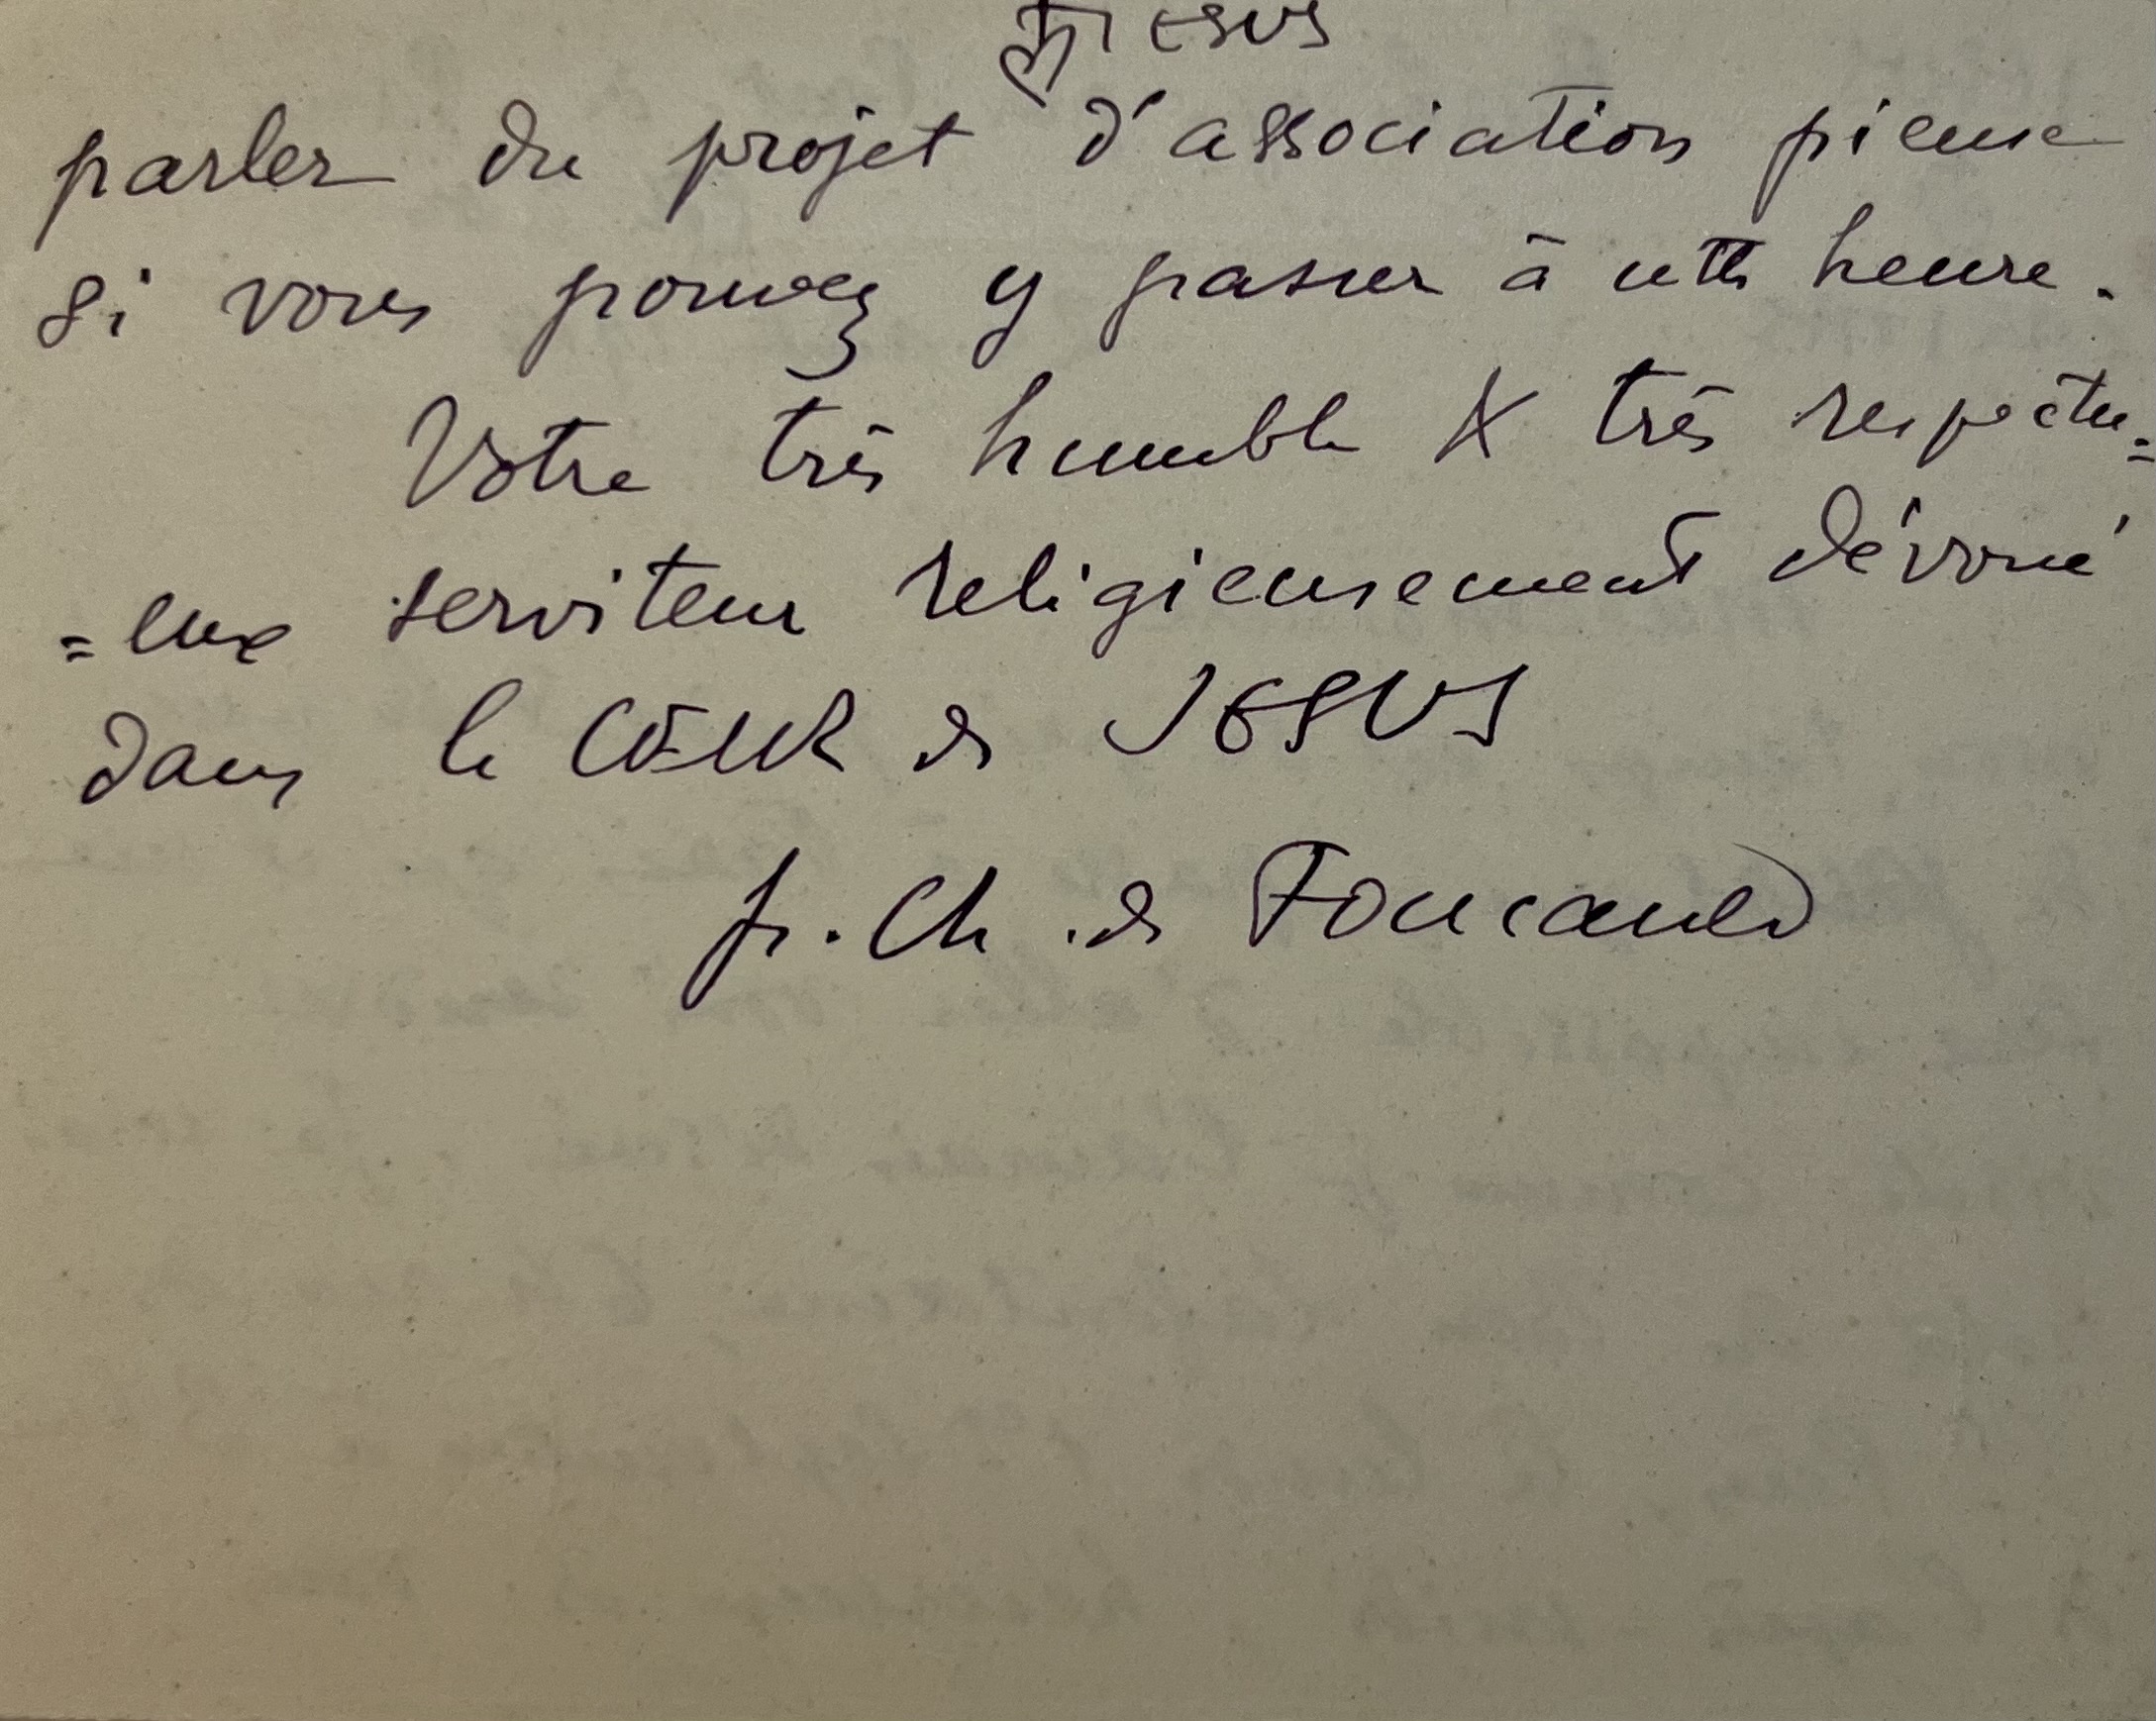 JESUS
parler du projet d'association pieuse
si vous pouvez y passer à cette heure.
Votre très humble & très respectu=
=eux serviteur religieusement dévoué
dans le CŒUR de JESUS
fr. Ch. de Foucauld